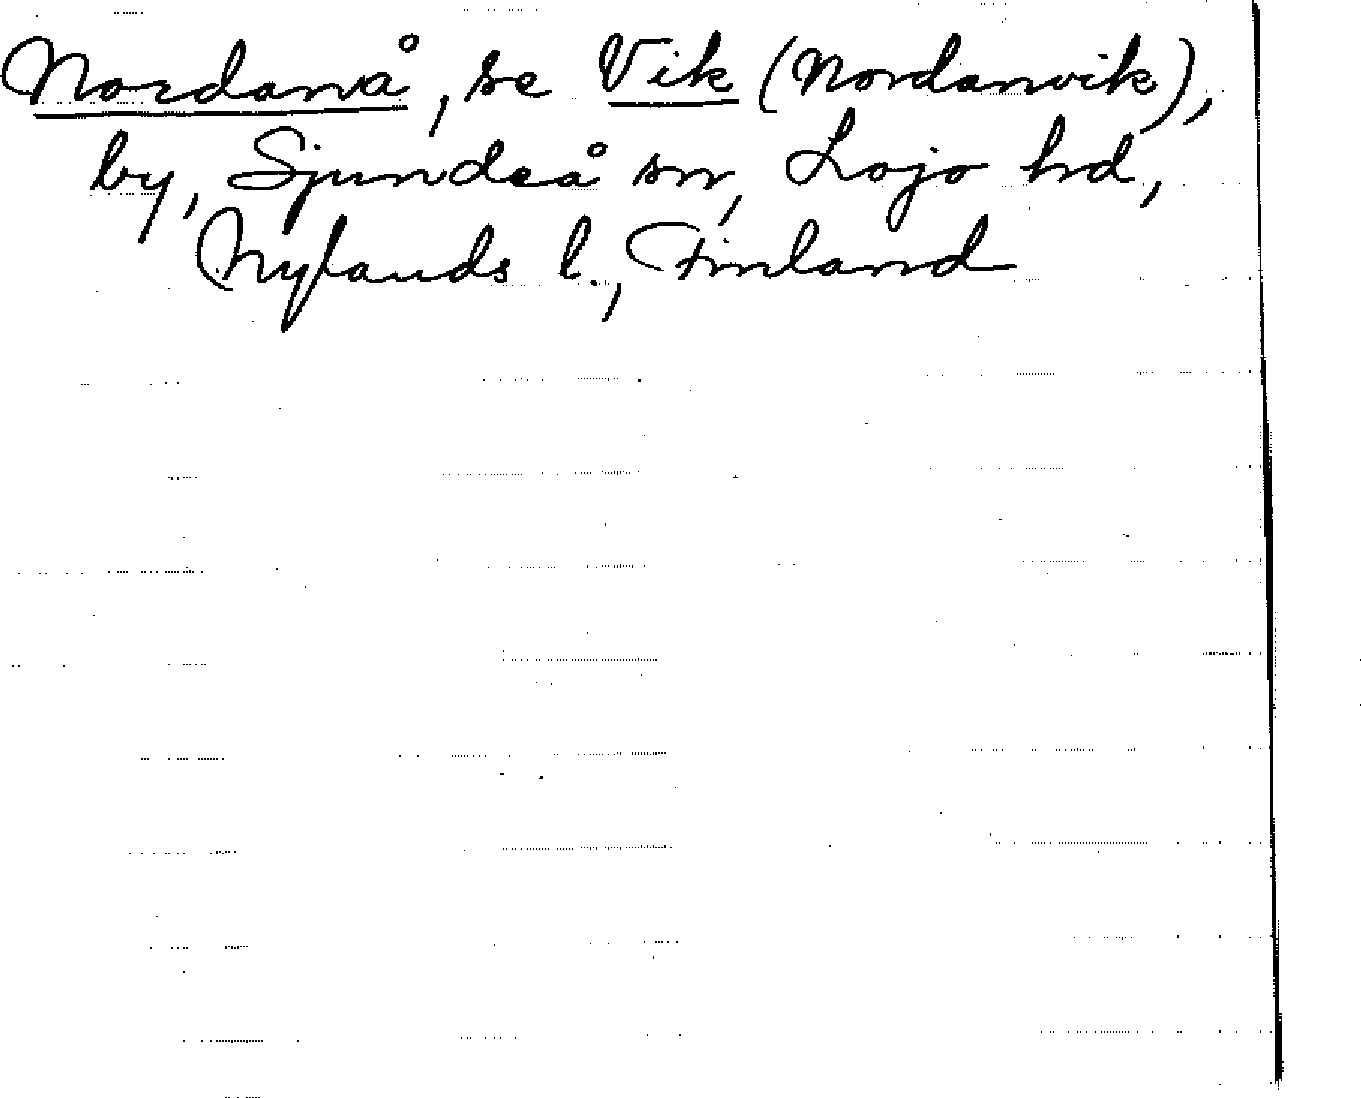 Nordanå, se Vik (Nordanvik),
by, Sjundeå sn, Lojo hd,
Nylands l., Finland